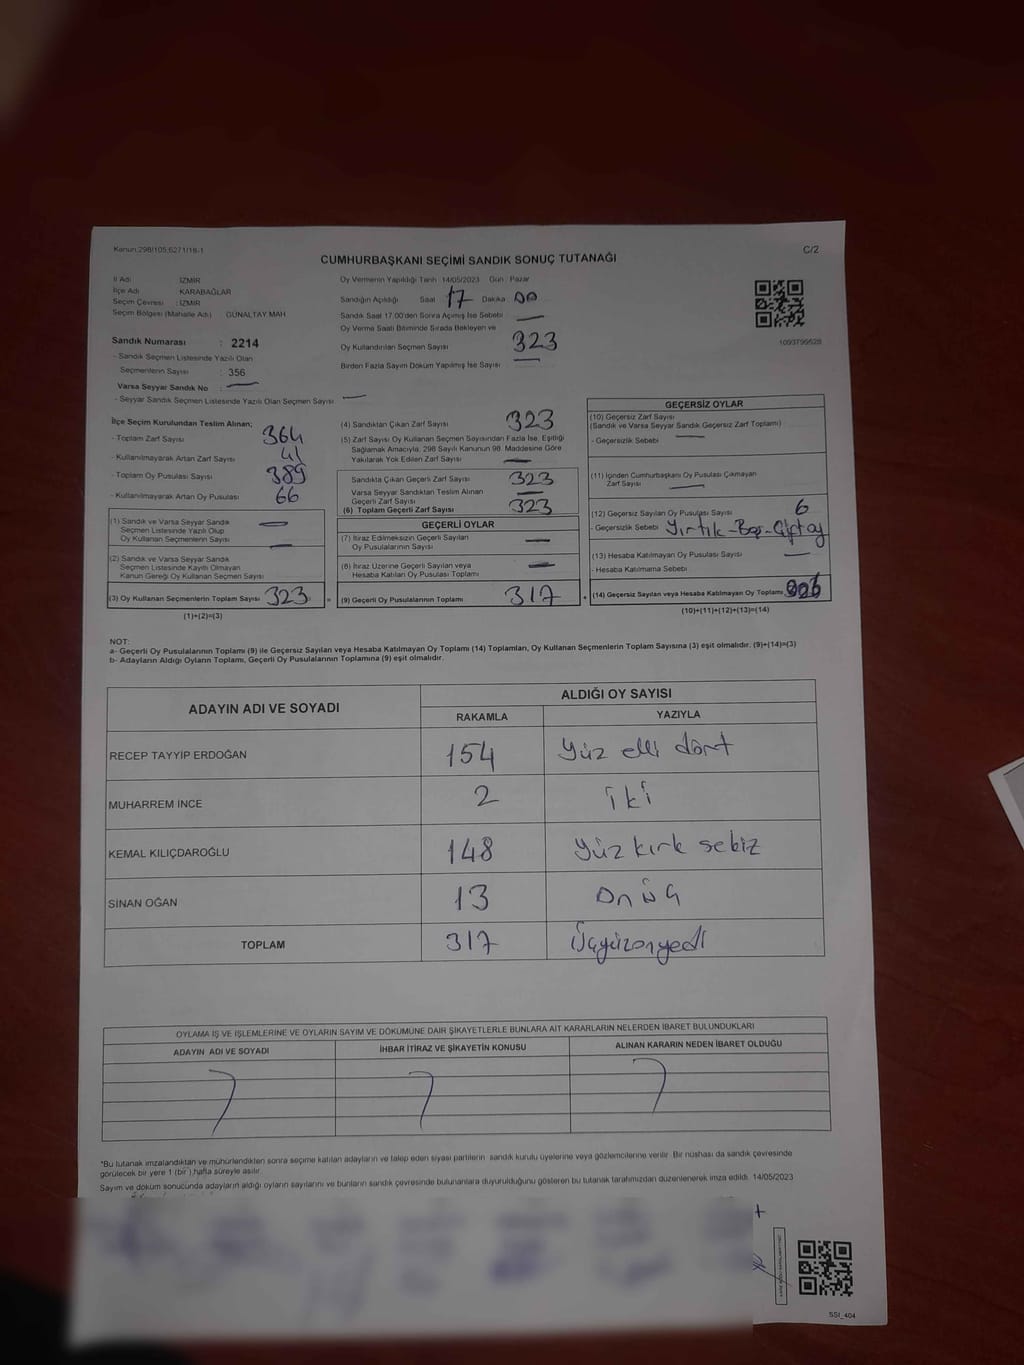 Kanun:298/105;6271/18-1
C/2
CUMHURBAŞKANI SEÇİMİ SANDIK SONUÇ TUTANAĞI
İl Adı : İZMİR
İlçe Adı : KARABAĞLAR
Seçim Çevresi : İZMİR
Seçim Bölgesi (Mahalle Adı) : GÜNALTAY MAH
Sandık Numarası : 2214
- Sandık Seçmen Listesinde Yazılı Olan
Seçmenlerin Sayısı : 356
Varsa Seyyar Sandık No : —
- Seyyar Sandık Seçmen Listesinde Yazılı Olan Seçmen Sayısı : —
Oy Vermenin Yapıldığı Tarih : 14/05/2023 Gün : Pazar
Sandığın Açıldığı Saat 17 Dakika 00
Sandık Saat 17.00'den Sonra Açılmış İse Sebebi : —
Oy Verme Saati Bitiminde Sırada Bekleyen ve
Oy Kullandırılan Seçmen Sayısı 323
Birden Fazla Sayım Döküm Yapılmış İse Sayısı : —
1093799628
İlçe Seçim Kurulundan Teslim Alınan;
- Toplam Zarf Sayısı 364
- Kullanılmayarak Artan Zarf Sayısı 41
- Toplam Oy Pusulası Sayısı 389
- Kullanılmayarak Artan Oy Pusulası 66
(1) Sandık ve Varsa Seyyar Sandık
Seçmen Listesinde Yazılı Olup
Oy Kullanan Seçmenlerin Sayısı —
(2) Sandık ve Varsa Seyyar Sandık
Seçmen Listesinde Kayıtlı Olmayan
Kanun Gereği Oy Kullanan Seçmen Sayısı —
(3) Oy Kullanan Seçmenlerin Toplam Sayısı 323
(1)+(2)=(3)
(4) Sandıktan Çıkan Zarf Sayısı 323
(5) Zarf Sayısı Oy Kullanan Seçmen Sayısından Fazla İse, Eşitliği
Sağlamak Amacıyla, 298 Sayılı Kanunun 98. Maddesine Göre
Yakılarak Yok Edilen Zarf Sayısı —
Sandıkta Çıkan Geçerli Zarf Sayısı 323
Varsa Seyyar Sandıktan Teslim Alınan
Geçerli Zarf Sayısı —
(6) Toplam Geçerli Zarf Sayısı 323
GEÇERLİ OYLAR
(7) İtiraz Edilmeksizin Geçerli Sayılan
Oy Pusulalarının Sayısı —
(8) İtiraz Üzerine Geçerli Sayılan veya
Hesaba Katılan Oy Pusulası Toplamı —
= (9) Geçerli Oy Pusulalarının Toplamı 317
GEÇERSİZ OYLAR
(10) Geçersiz Zarf Sayısı
(Sandık ve Varsa Seyyar Sandık Geçersiz Zarf Toplamı)
- Geçersizlik Sebebi —
(11) İçinden Cumhurbaşkanı Oy Pusulası Çıkmayan
Zarf Sayısı —
(12) Geçersiz Sayılan Oy Pusulası Sayısı 6
- Geçersizlik Sebebi Yırtık-Boş-Çift oy
(13) Hesaba Katılmayan Oy Pusulası Sayısı —
- Hesaba Katılmama Sebebi
+ (14) Geçersiz Sayılan veya Hesaba Katılmayan Oy Toplamı
(10)+(11)+(12)+(13)=(14)
NOT:
a- Geçerli Oy Pusulalarının Toplamı (9) ile Geçersiz Sayılan veya Hesaba Katılmayan Oy Toplamı (14) Toplamları, Oy Kullanan Seçmenlerin Toplam Sayısına (3) eşit olmalıdır. (9)+(14)=(3)
b- Adayların Aldığı Oyların Toplamı, Geçerli Oy Pusulalarının Toplamına (9) eşit olmalıdır.
ADAYIN ADI VE SOYADI
ALDIĞI OY SAYISI
RAKAMLA YAZIYLA
RECEP TAYYİP ERDOĞAN 154 Yüz elli dört
MUHARREM İNCE 2 iki
KEMAL KILIÇDAROĞLU 148 Yüz kırk sekiz
SİNAN OĞAN 13 On üç
TOPLAM 317 Üçyüzonyedi
OYLAMA İŞ VE İŞLEMLERİNE VE OYLARIN SAYIM VE DÖKÜMÜNE DAİR ŞİKAYETLERLE BUNLARA AİT KARARLARIN NELERDEN İBARET BULUNDUKLARI
ADAYIN ADI VE SOYADI İHBAR İTİRAZ VE ŞİKAYETİN KONUSU ALINAN KARARIN NEDEN İBARET OLDUĞU
*Bu tutanak imzalandıktan ve mühürlendikten sonra seçime katılan adayların ve talep eden siyasi partilerin sandık kurulu üyelerine veya gözlemcilerine verilir. Bir nüshası da sandık çevresinde
görülecek bir yere 1 (bir) hafta süreyle asılır.
Sayım ve döküm sonucunda adayların aldığı oyların sayılarını ve bunların sandık çevresinde bulunanlara duyurulduğunu gösteren bu tutanak tarafımızdan düzenlenerek imza edildi. 14/05/2023
SSI_404